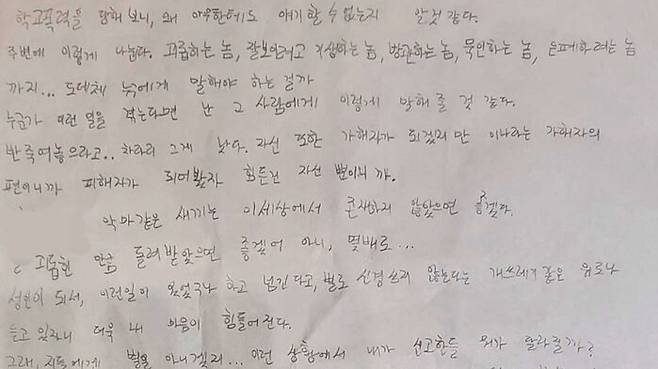 학교폭력을 당해 보니, 왜 아무한테도 얘기할 수 없는지 알것 같다.
주변에 이렇게 나눕다. 괴롭히는 놈, 잘보일려고 가상하는 놈, 방관하는 놈, 묵인하는 놈, 은폐하려는 놈
까지... 도대체 누에게 말해야 하는 걸까
누군가 이런 일을 겪는다면 난 그 사람에게 이렇게 말해 줄 것 같다.
반죽여놓으라고.. 차라리 그게 낫다. 자신 또한 가해자가 되겠지만 이나라는 가해자의
편이니까 피해자가 되어봤자 힘든건 자신 뿐이니까.
악마같은 새끼는 이세상에서 존재하지 않았으면 좋겠다.
괴롭힌 만큼 돌려받았으면 좋겠어 아니, 몇배로...
성인이 되서, 이런일이 있었구나 하고 넘긴다고, 별로 신경쓰지 않는다는 개쓰레기같은 위로나
듣고 있자니 더욱 내 마음이 힘들어진다.
그래, 지들에게 별일 아니겠지... 이런 상황에서 내가 신고한들 뭐가 달라질까?